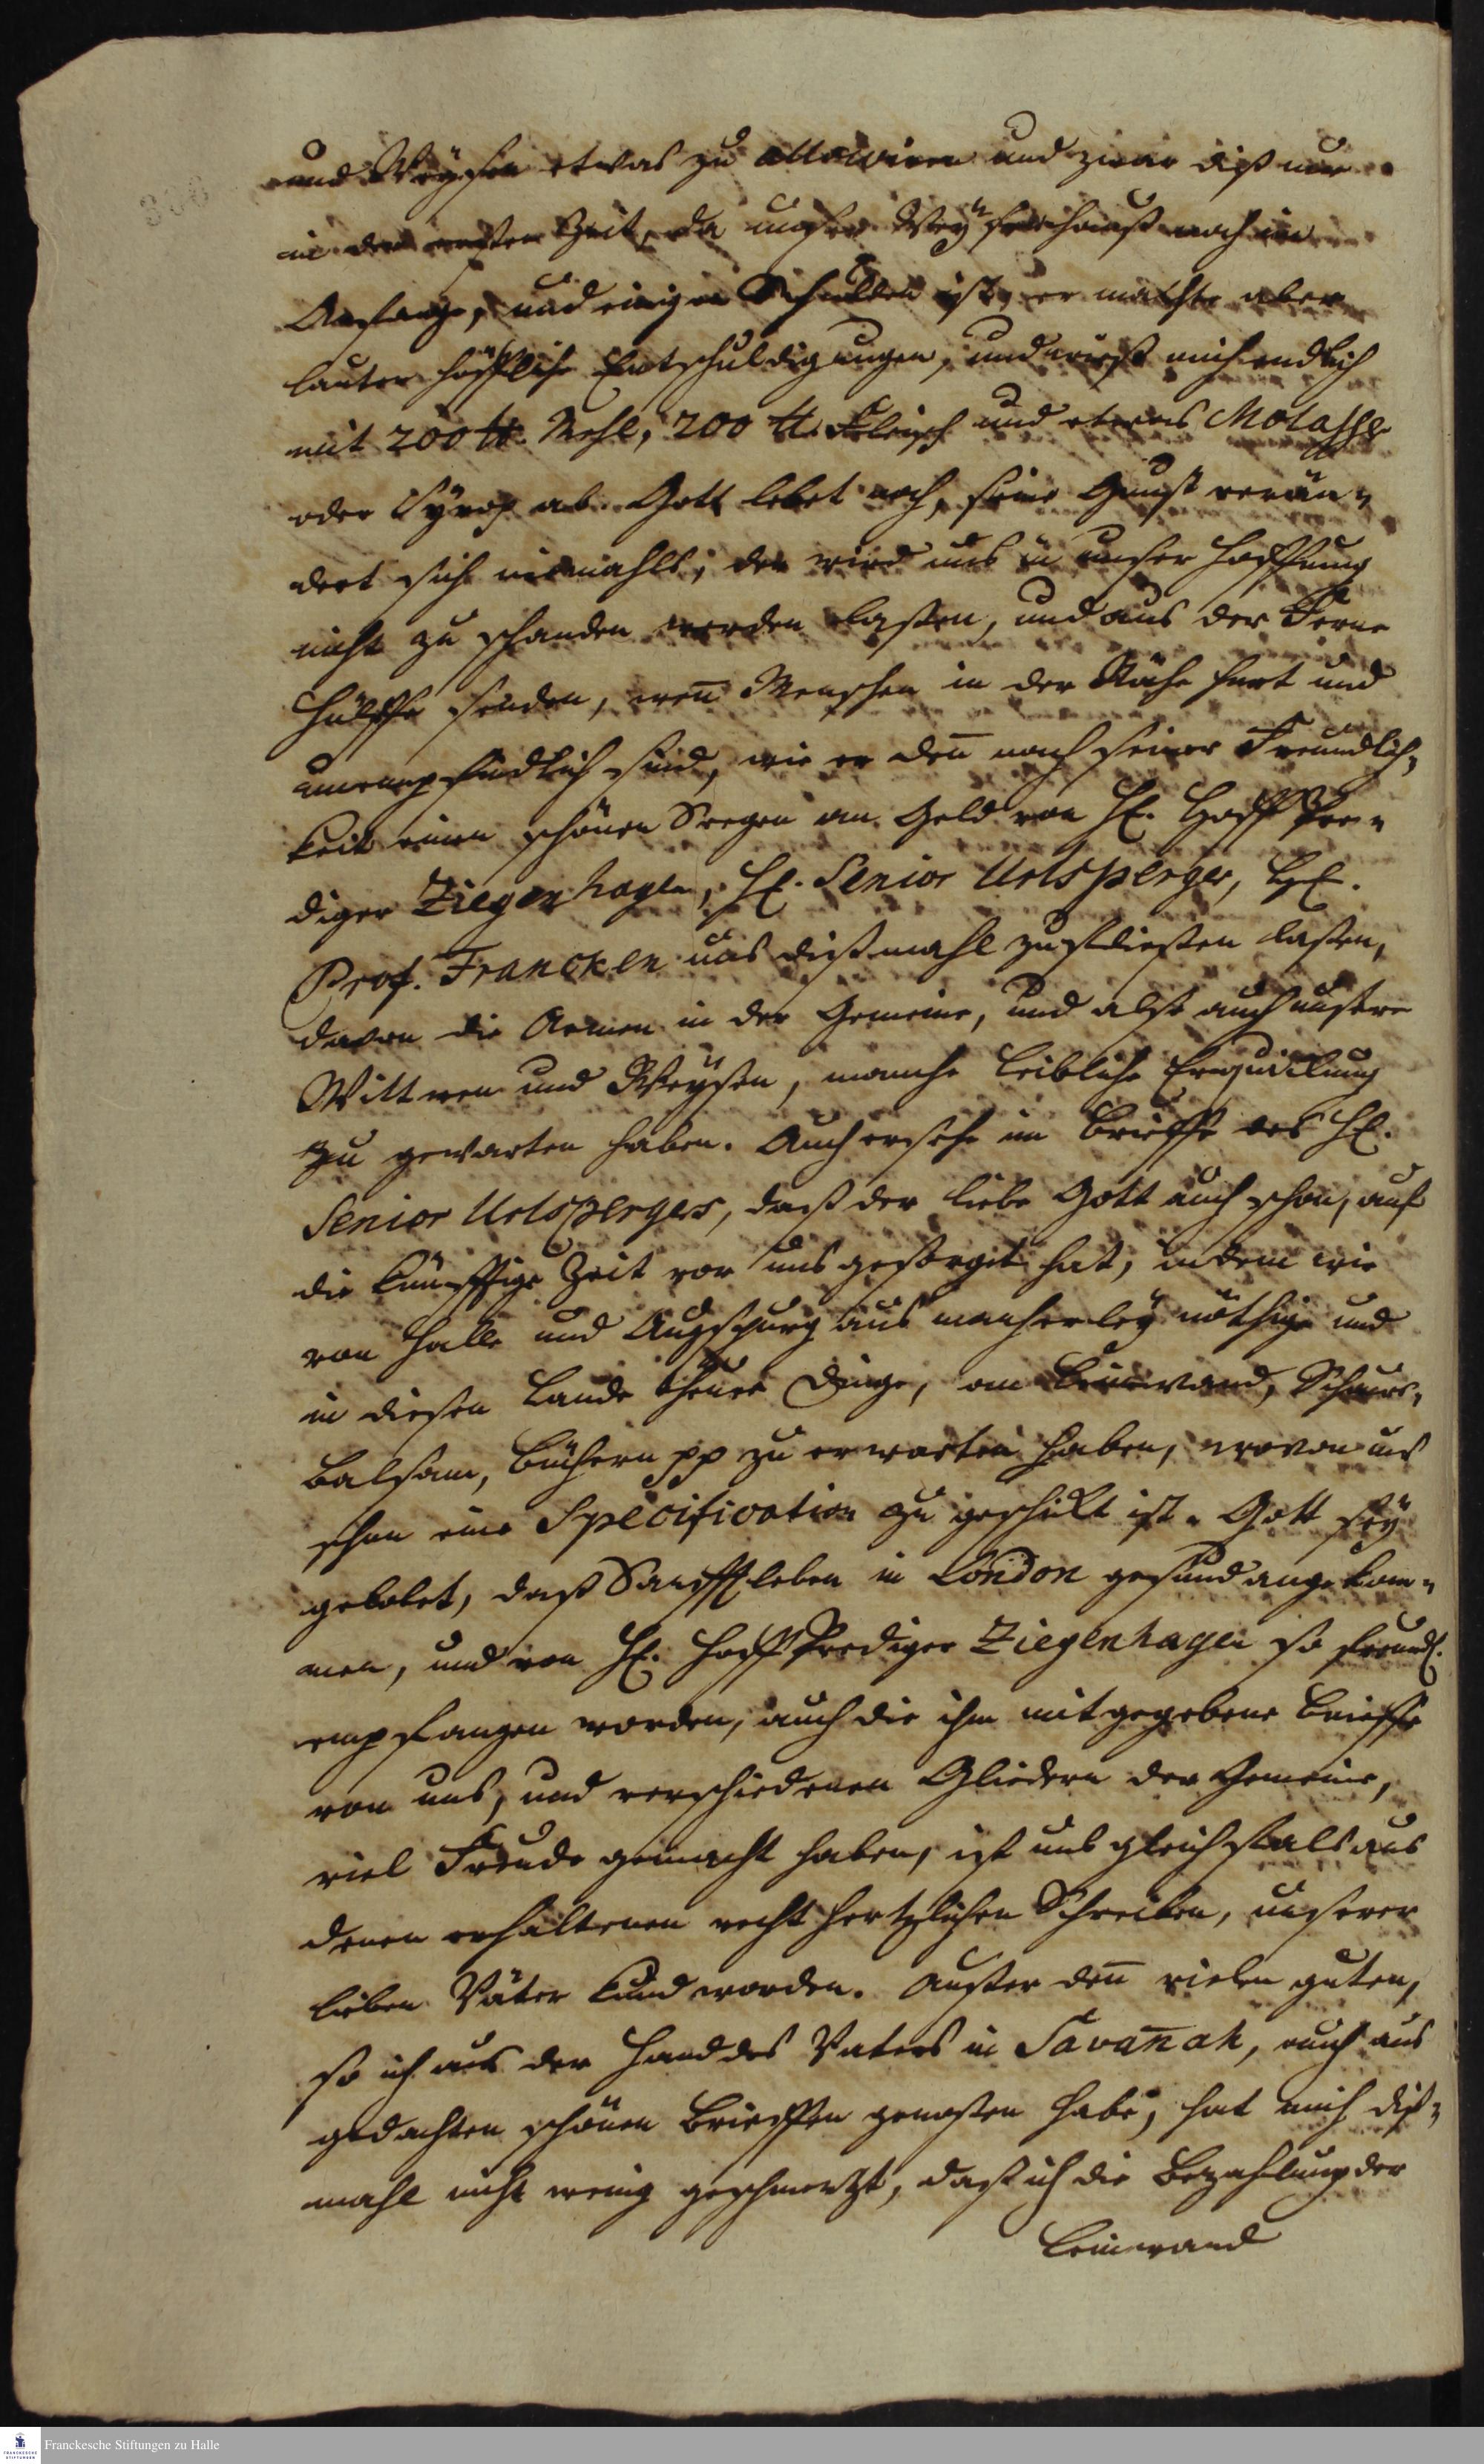 und Waysen etwas zu allowiren und zwar diß nur
in der ersten Zeit, da unser Waysenhauß noch im
Anfange, und einigen Schulden ist, er machte aber
lauter höffliche Entschuldigungen, und wieß mich endlich
mit 200 ℔. Mehl, 200 ℔. Fleisch und etwas Molasses
oder Syrop ab. Gott lebet noch, seine Gunst verän-
dert sich niemahls, der wird uns in unser Hoffnung
nicht zu schanden werden laßen, und aus der Ferne
Hülffe senden, weñ Menschen in der Nähe hart und
unempfindlich sind, wie er deñ nach seiner Freundlich-
keit einen schönen Seegen an Geld von H. Hoff Pre-
diger Ziegenhagen, H. Senior Urlsperger, H.
Prof. Francken uns dießmahl zufließen laßen,
davon die Armen in der Gemeine, und also auch unsere
Wittwen und Waysen, manche leibliche Erquickung
zu gewarten haben. Auch ersehe im Brieffe des H.
Senior Urlspergers, daß der liebe Gott auch schon, auf
die künfftige Zeit vor uns gesorget hat, indem wir
von Halle und Augspurg aus mancherley nöthige und
in diesen Lande theure Dinge, an Leinwand, Schauer-
Balsam, Büchern pp zu erwarten haben, wovon uns
schon eine Specification zu geschickt ist. Gott sey
gelobet, daß Sanfftleben in London gesund angekom-
men, und von H. Hoff Prediger Ziegenhagen so freundl.
empfangen worden, auch die ihm mitgegebene Brieffe
von uns, und verschiedenen Gliedern der Gemeine,
viel Freude gemacht haben, ist uns gleichfals aus
denen erhaltenen recht hertzlichen Schreiben, unserer
lieben Väter kund worden. Außer deñ vielen guten,
so ich aus der Hand des Vaters in Savañah, auch aus
gedachten schönen Brieffen genoßen habe, hat mich diß-
mahl nicht wenig geschmertzt, daß ich die Bezahlung der
Leinwand
Franckesche Stiftungen zu Halle